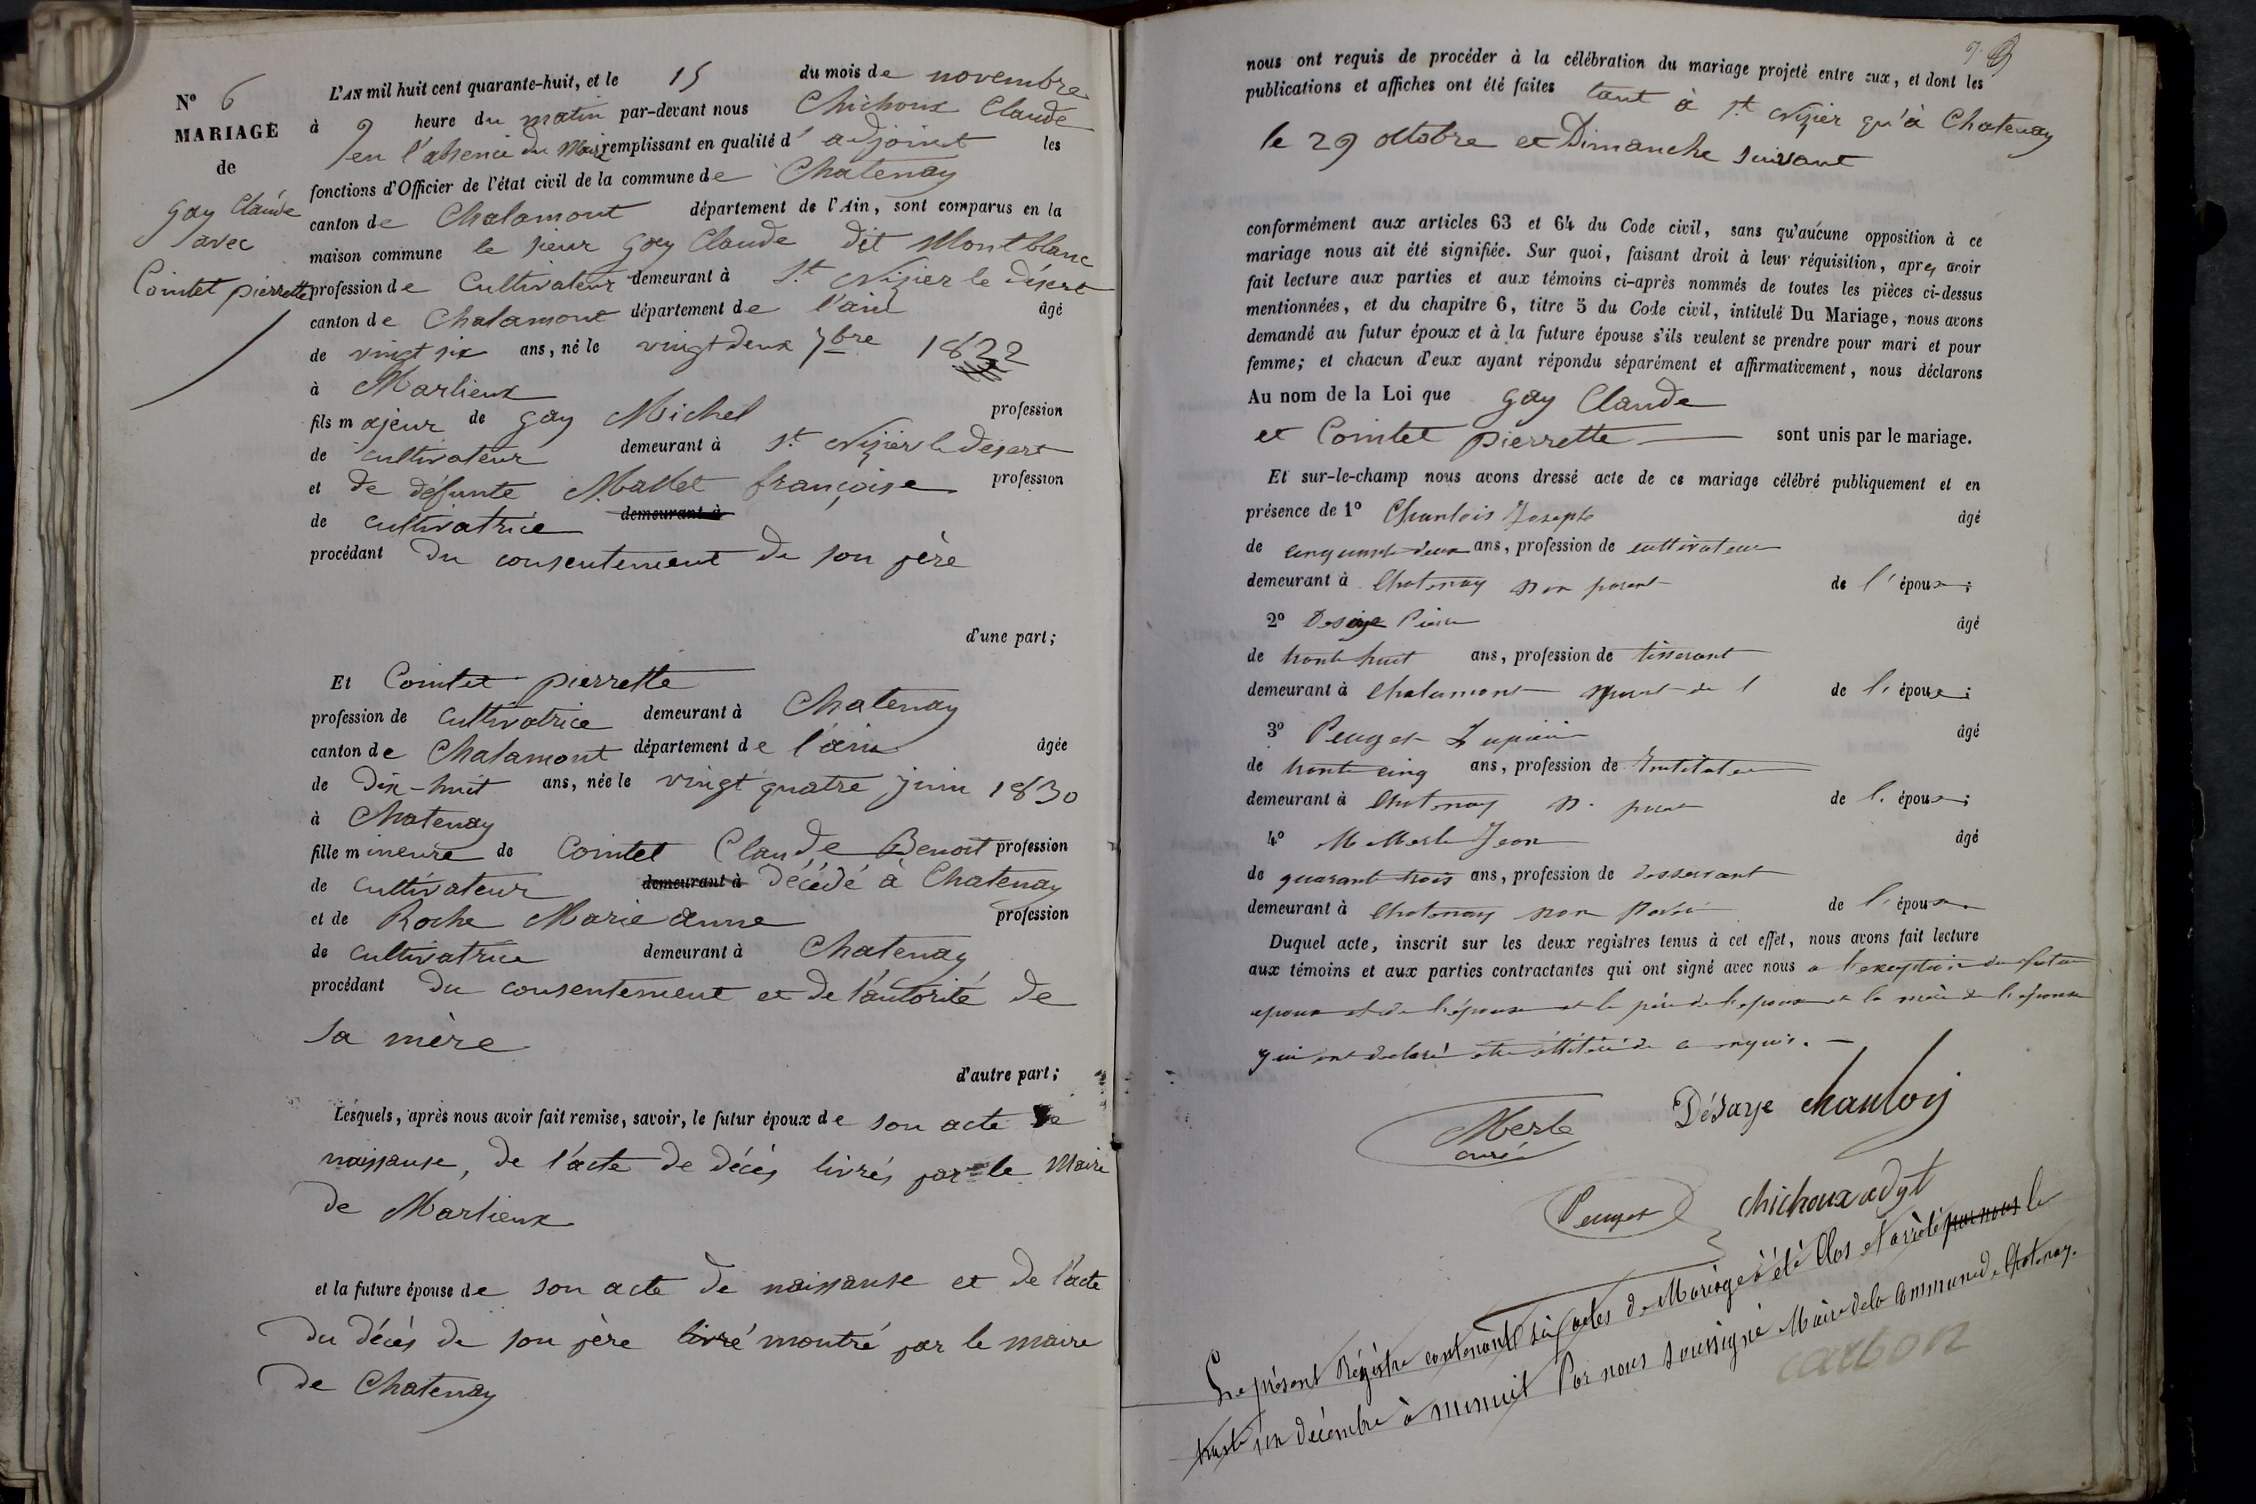 N° 6
MARIAGE
de
Gay Claude
avec
Comtet pierrette
L'AN mil huit cent quarante-huit, et le 15 du mois de novembre
à 9 heure du matin par-devant nous Chichoux Claude
en l'absence du Maire remplissant en qualité d'adjoint les
fonctions d'Officier de l'état civil de la commune de Chatenay
canton de Chalamont département de l'Ain, sont comparus en la
maison commune le sieur Gay Claude dit Montblanc
profession de Cultivateur demeurant à St. Nizier le désert
canton de Chalamont département de l'ain âgé
de vingt six ans, né le vingt deux 7bre 1822
à Marlieux
fils majeur de Gay Michel profession
de cultivateur demeurant à St. Nizier le desert
et de défunte Mallet françoise profession
de cultivatrice demeurant à
procédant du consentement de son père
d'une part;
Et Comtet pierrette
profession de cultivatrice demeurant à Chatenay
canton de Chalamont département de l'ain âgée
de Dix-huit ans, née le vingt quatre juin 1830
à Chatenay
fille mineure de Comtet Claude Benoit profession
de cultivateur demeurant à décédé à Chatenay
et de Roche Marie anne profession
de cultivatrice demeurant à Chatenay
procédant du consentement et de l'autorité de
sa mère
d'autre part;
Lesquels, après nous avoir fait remise, savoir, le futur époux de son acte de
naissanse, de l'acte de décés livrés par le Maire
de Marlieux
et la future épouse de son acte de naissanse et de l'acte
du décés de son père livré montré par le maire
de Chatenay
nous ont requis de procéder à la célébration du mariage projeté entre eux, et dont les
publications et affiches ont été faites tant à St. Nizier qu'à Chatenay
le 29 octobre et Dimanche suivant
conformément aux articles 63 et 64 du Code civil, sans qu'aucune opposition à ce
mariage nous ait été signifiée. Sur quoi, faisant droit à leur réquisition, après avoir
fait lecture aux parties et aux témoins ci-après nommés de toutes les pièces ci-dessus
mentionnées, et du chapitre 6, titre 5 du Code civil, intitulé Du Mariage, nous avons
demandé au futur époux et à la future épouse s'ils veulent se prendre pour mari et pour
femme; et chacun d'eux ayant répondu séparément et affirmativement, nous déclarons
Au nom de la Loi que Gay Claude
et Comtet pierrette sont unis par le mariage.
Et sur-le-champ nous avons dressé acte de ce mariage célébré publiquement et en
présence de 1° Chanlois Joseph âgé
de cinquante deux ans, profession de cultivateur
demeurant à Chatenay non parent de l'époux;
2° Desaye Pierre âgé
de trente huit ans, profession de tisserant
demeurant à Chalamont de l'épouse;
3° Peuget âgé
de trente cinq ans, profession de Instituteur
demeurant à Chatenay n. parent de l'époux;
4° Merle Jean âgé
de quarante trois ans, profession de desservant
demeurant à Chatenay non de l'époux.
Duquel acte, inscrit sur les deux registres tenus à cet effet, nous avons fait lecture
aux témoins et aux parties contractantes qui ont signé avec nous a l'exception du futur
epoux et de l'épouse et le père de l'epoux et la mère de l'épouse
qui ont declaré etre illitéré de ce enquis.
Merle
curé
Désaye chanlois
Peuget
chichoux adjt
Le présent Régistre contenant six actes de Mariage à été Clos et arrêté par nous le
trente un décembre à minuit Par nous soussigné Maire de la Commune de Chatenay.
carbon